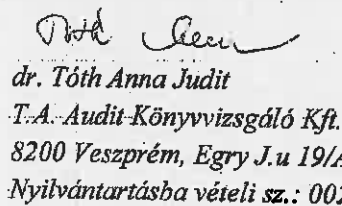 dr. Tóth Anna Judit
T.A. Audit Könyvvizsgáló Kft.
8200 Veszprém, Egry J.u 19/A
Nyilvántartásba vételi sz.: 002